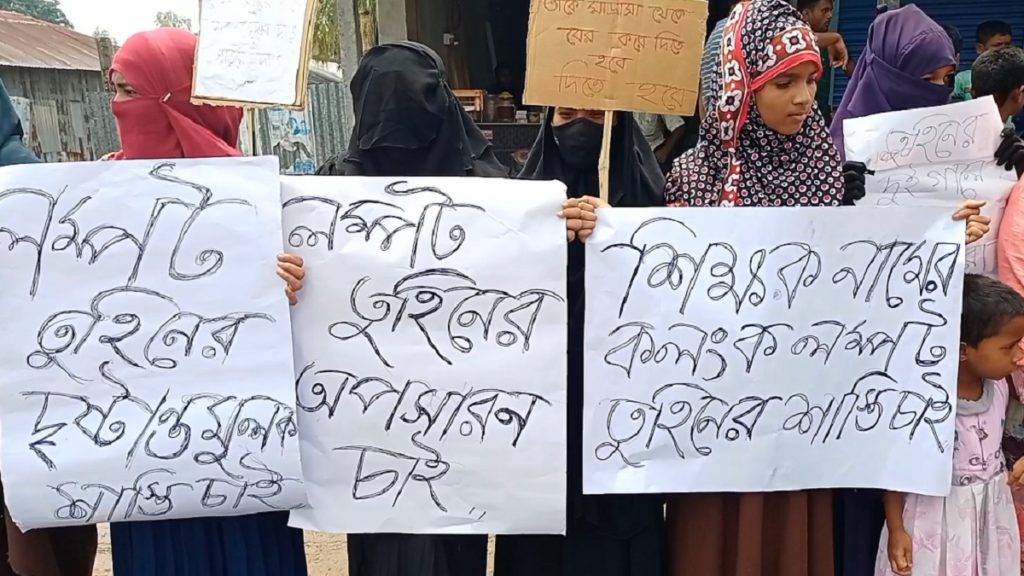 তাকে মাদ্রাসা থেকে
বের করে দিতে
হবে
দিতে হবে
লম্পট
তুহিনের
দৃষ্টান্তমুলক
শাস্তি চাই
লম্পট
তুহিনের
অপসারন
চাই
শিক্ষক নামের
কলংক লম্পট
তুহিনের শাস্তি চাই
তুহিনের
দুই গালে